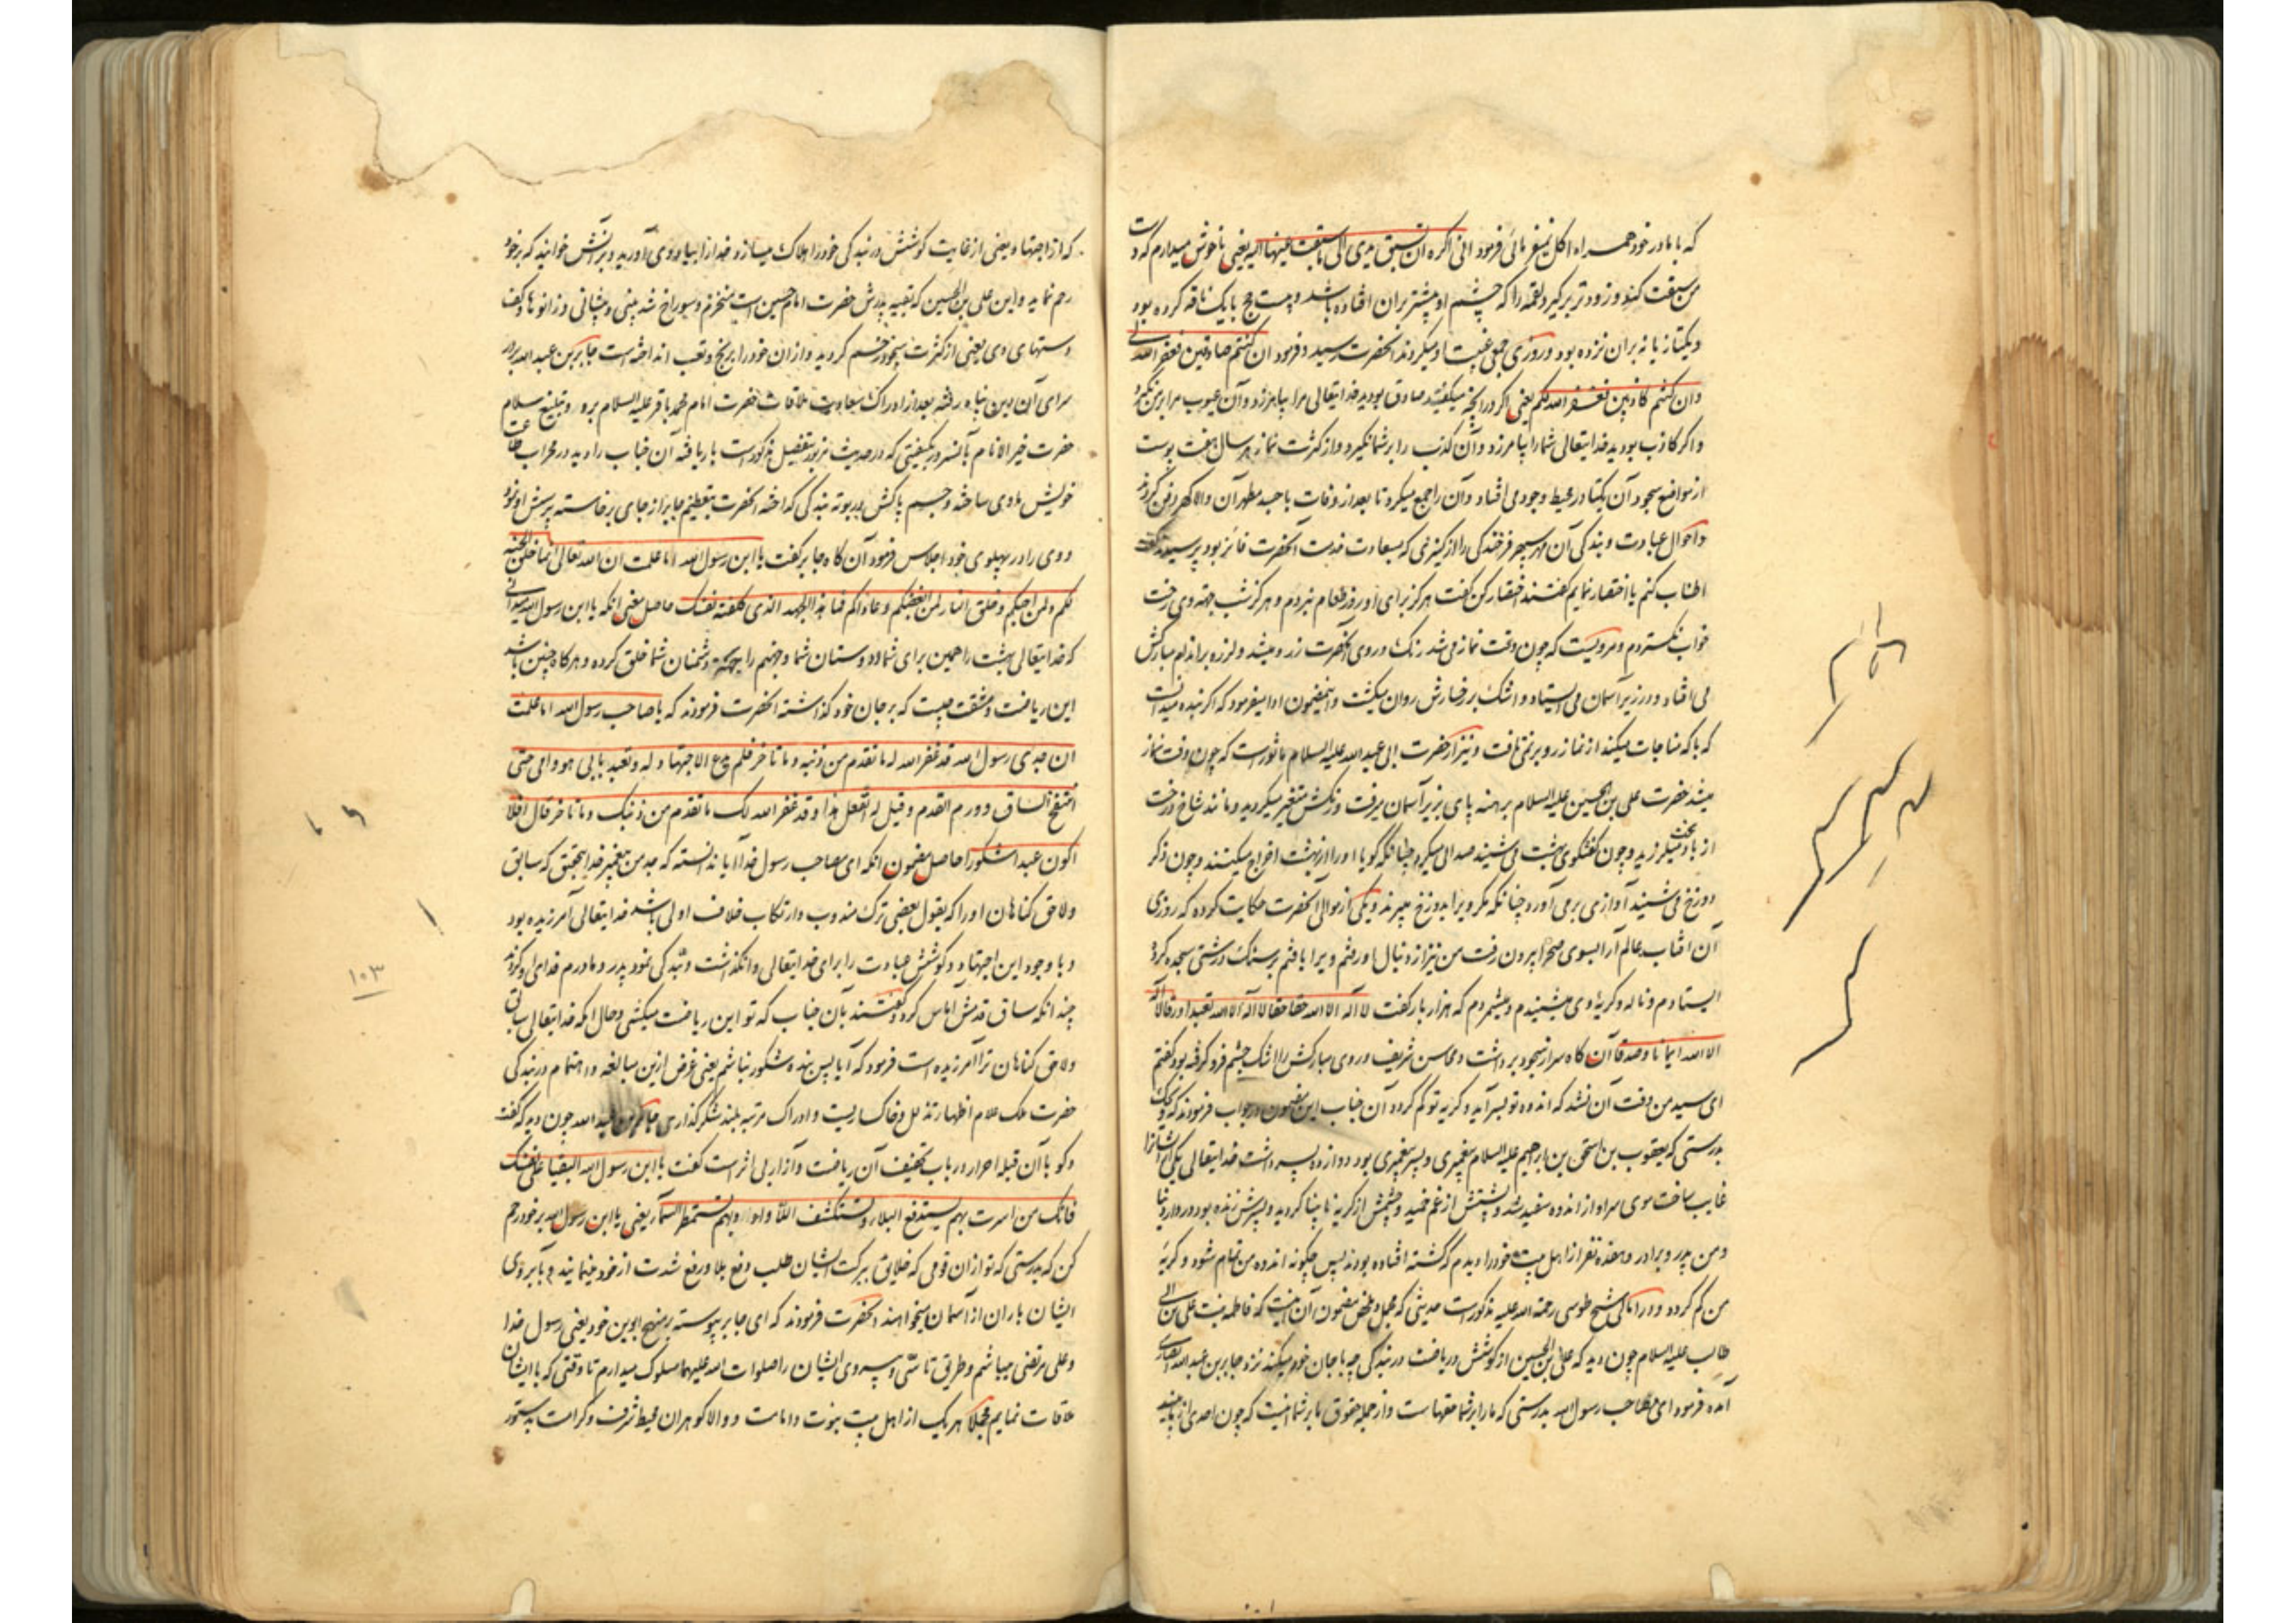 که با مادر خود همراه اکل نمیفرمائی فرمود انی اکره ان تسبق یدی الی ما سبقت عینها الیه یعنی ناخوش میدارم که دست
من سبقت کند و زودتر بر گیرد لقمه را که چشم او پیشتر بران افتاده باشد و بیست حج با یک ناقه کرده بود
و یکتازیانه بران نزده بود و روزی جمعی غیبت او میکردند آنحضرت رسید و فرمود ان کنتم صادقین فغفر الله لی
وان کنتم کاذبین فغفر الله لکم یعنی اگر در آنچه میگفتید صادق بودید خدایتعالی مرا بیامرزد و آن عیوب مرا بر من نگیرد
و اگر کاذب بودید خدایتعالی شما را بیامرزد و آن کذب را بر شما نگیرد و از کثرت نماز هر سال هفت پوست
از مواضع سجود آن یکتا در محیط وجود می افتاد و آن را جمع میکرد تا بعد از وفات با جسد مطهر آن والا گهر دفن کردند
و احوال عبادت و بندگی آن مهر سپهر فرخندگی را از کنیزکی که بسعادت خدمت آنحضرت فائز بود پرسیدند گفت
اطناب کنم یا اختصار نمایم گفتند اختصار کن گفت هرگز برای او روز طعام نبردم و هرگز شب جهة وی رخت
خواب نگستردم و مرویست که چون وقت نماز می شد رنگ روی آنحضرت زرد میشد و لرزه بر اندام مبارکش
می افتاد و در زیر آسمان می ایستاد و اشک بر رخسارش روان میگشت و اینمضمون ادا میفرمود که اگر بنده میدانست
که با که مناجات میکند از نماز رو بر نمی تافت و نیز از حضرت ابی عبد الله علیه السلام ماثورست که چون وقت نماز
میشد حضرت علی بن الحسین علیه السلام برهنه پای بزیر آسمان میرفت و رنگش متغیر میگردید و مانند شاخ درخت
از باد میلرزید و چون گفتگوی بهشت می شنید صدائی میکرد چنانکه گویا او را از بهشت اخراج میکنند و چون ذکر
دوزخ می شنید آوازی بر می آورد چنانکه مگر ویرا بدوزخ میبرند و یکی از موالی آنحضرت حکایت کرده که روزی
آن افتاب عالم آرا بسوی صحرا بیرون رفت من نیز از دنبال او رفتم ویرا یافتم بر سنگ درشتی سجده کرده
ایستادم و ناله و گریهٔ وی میشنیدم و میشمردم که هزار بار گفت لا اله الا الله حقا حقا لا اله الا الله تعبدا و رقا لا اله
الا الله ایمانا و صدقا آن گاه سر از سجود برداشت و محاسن شریف و روی مبارکش را اشک چشم فرو گرفته بود گفتم
ای سید من وقت آن نشد که اندوه تو بسر آید و گریه تو کم گردد آن جناب این مضمون در جواب فرمودند که ویحک
بدرستی که یعقوب بن اسحق بن ابراهیم علیه السلام پیغمبری و پسر پیغمبری بود دوازده پسر داشت خدایتعالی یکی از ایشانرا
غایب ساخت موی سر او از اندوه سفید شد و پشتش از غم خمید و چشمش از گریه نابینا گردید و پسرش زنده بود در دار دنیا
و من پدر و برادر و هفده نفر از اهل بیت خود را دیدم که کشته افتاده بودند پس چگونه اندوه من تمام شود و گریهٔ
من کم گردد و در امالی شیخ طوسی رحمة الله علیه مذکورست حدیثی که مجمل و ملخص مضمون آن اینست که فاطمه بنت علی بن ابی
طالب علیه السلام چون دید که علی بن الحسین از کوشش و ریاضت در بندگی چه با جان خود میکند نزد جابر بن عبد الله انصاری
آمده فرمود ای صاحب رسول الله بدرستی که ما را بر شما حقهاست و از جمله حقوق ما بر شما اینست که چون احدی از ما بینید
که از اجتهاد یعنی از غایت کوشش در بندگی خود را هلاک میسازد خدا را بیاد وی آورید و بر آنش خوانید که بر خود
رحم نماید و این علی بن الحسین که بقیه پدرش حضرت امام حسین است منخرم و سوراخ شد بینی و پیشانی و زانوها و کف
دستهای وی یعنی از کثرت سجود زخم گردید و از ان خود را برنج و تعب انداخته است جابر بن عبد الله بدر
سرای آن دین پناه رفته بعد از ادراک سعادت ملاقات حضرت امام محمد باقر علیه السلام بر در و تبلیغ سلام
حضرت خیر الانام بآنسرور بکیفیتی که در حدیث مزبور بتفصیل مذکورست بار یافته آن جناب را دید در محراب طاعت
خویش ماوی ساخته و جسم پاکش در بوته بندگی گداخته آنحضرت بتعظیم جابر از جای برخاسته پرسش او نمود
و وی را در پهلوی خود اجلاس فرمود آن گاه جابر گفت یا ابن رسول الله اما علمت ان الله تعالی انما خلق الجنة
لکم و لمن احبکم و خلق النار لمن ابغضکم و عاداکم فما هذا الجهد الذی کلفته نفسک حاصل معنی آنکه یا ابن رسول الله میدانی
که خدایتعالی بهشت را همین برای شما و دوستان شما و جهنم را جهة دشمنان شما خلق کرده و هر گاه چنین باشد
این ریاضت و مشقت چیست که بر جان خود گذاشته آنحضرت فرمودند که یا صاحب رسول الله اما علمت
ان جدی رسول الله قد غفر الله له ما تقدم من ذنبه و ما تاخر فلم یدع الاجتهاد له و تعبد بابی هو و امی حتی
انتفخ الساق و ورم القدم و قیل له اتفعل هذا و قد غفر الله لک ما تقدم من ذنبک و ما تاخر قال افلا
اکون عبدا شکورا حاصل مضمون آنکه ای صاحب رسول خدا آیا ندانسته که جد من پیغمبر خدا بتحقیق که سابق
ولاحق گناهان او را که بقول بعضی ترک مندوب و ارتکاب خلاف اولی باشد خدایتعالی آمرزیده بود
و با وجود این اجتهاد و کوشش عبادت را برای خدایتعالی وانگذاشت و بندگی نمود پدر و مادرم فدای وی گردند
چندانکه ساق قدمش آماس کرد گفتند بآن جناب که تو این ریاضت میکشی و حال آنکه خدایتعالی سابق
ولاحق گناهان ترا آمرزیده است فرمود که آیا پس بنده شکور نباشم یعنی غرض ازین مبالغه و اهتمام در بندگی
حضرت ملک علام اظهار تذلل و خاکساریست و ادراک مرتبه بلند شکر گذاری جابر بن عبد الله چون دید که گفت
وگو با آن قبله احرار در باب تخفیف آن ریاضت و آزار بی اثر است گفت یا ابن رسول الله البقیا علی نفسک
فانک من اسرت بهم یستدفع البلاء و یستکشف اللأواء و بهم یستمطر السماء یعنی یا ابن رسول الله بر خود رحم
کن که بدرستی که تو از ان قومی که خلایق ببرکت ایشان طلب دفع بلا و رفع شدت از خود مینمایند و بآبروی
ایشان باران از آسمان میخواهند آنحضرت فرمودند که ای جابر پیوسته بر منهج ابوین خود یعنی رسول خدا
و علی مرتضی میباشم و طریق تاسی و پیروی ایشان را صلوات الله علیهما مسلوک میدارم تا وقتی که با ایشان
ملاقات نمایم مجملا هر یک از اهل بیت نبوت و امامت و والا گوهران محیط شرف و کرامت بدستور
۱۰۳